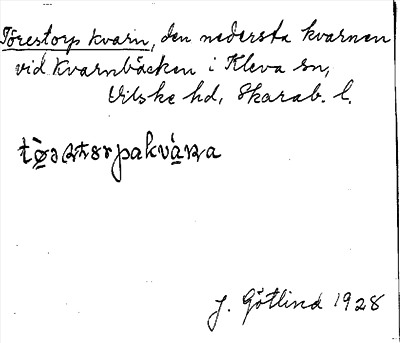 Törestorp kvarn, den nedersta kvarnen
vid Kvarnbäcken i Kleva sn,
Vilske hd, Skarab. l.
J. Götlind 1928